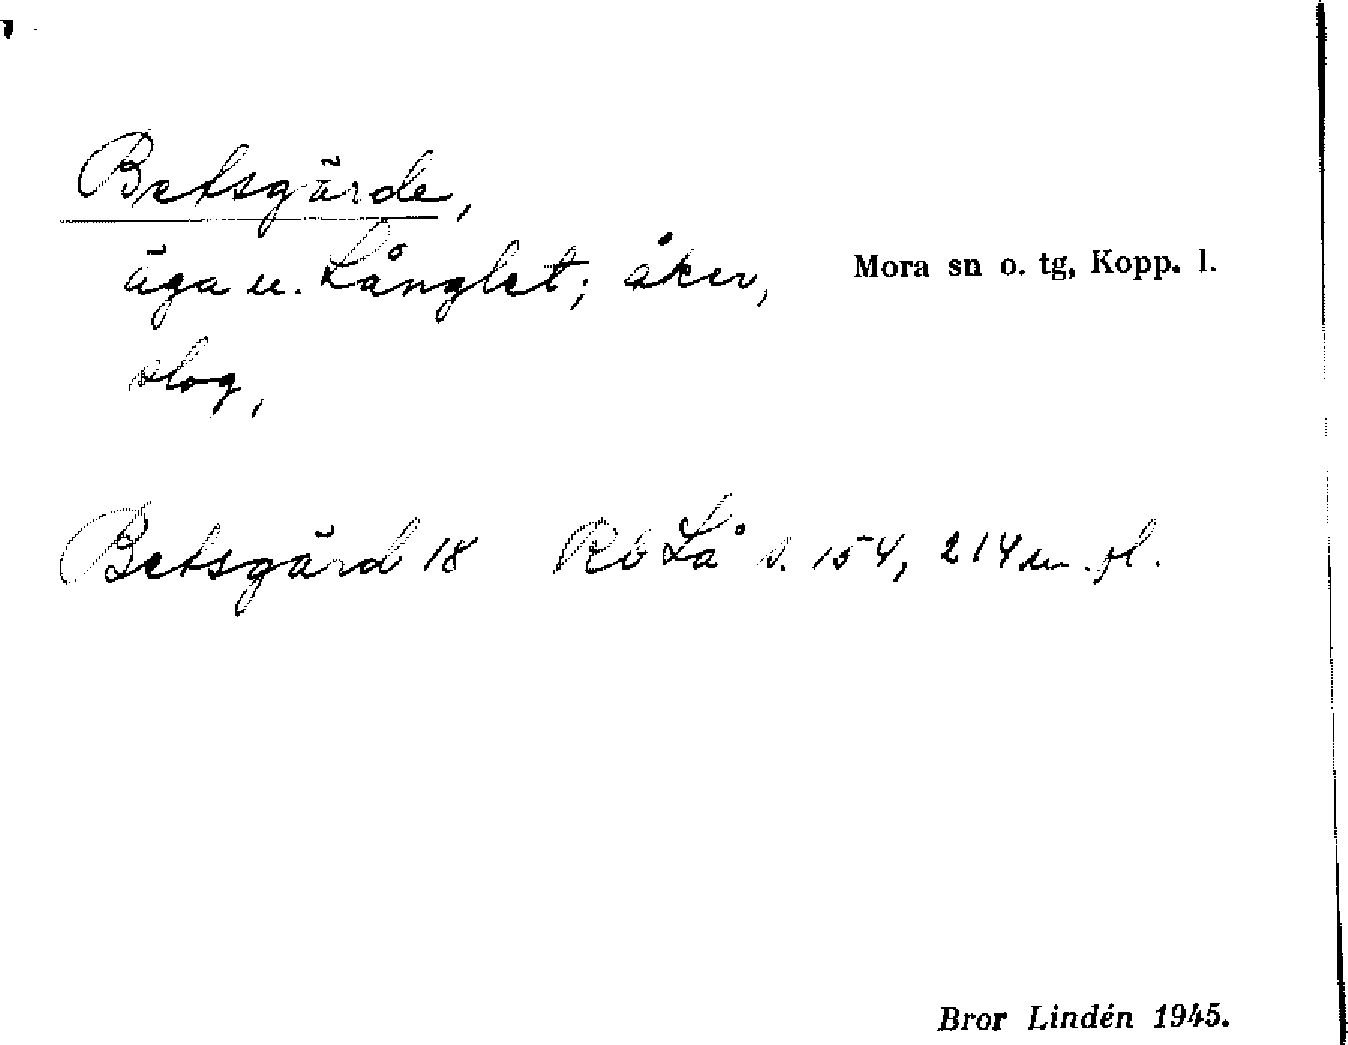 Betsgärde,
äga u. Långlet; åker,
slog,
Mora sn o. tg, Kopp. l.
Betsgärd 18 Rb Lå s. 154, 214 m. fl.
Bror Lindén 1945.